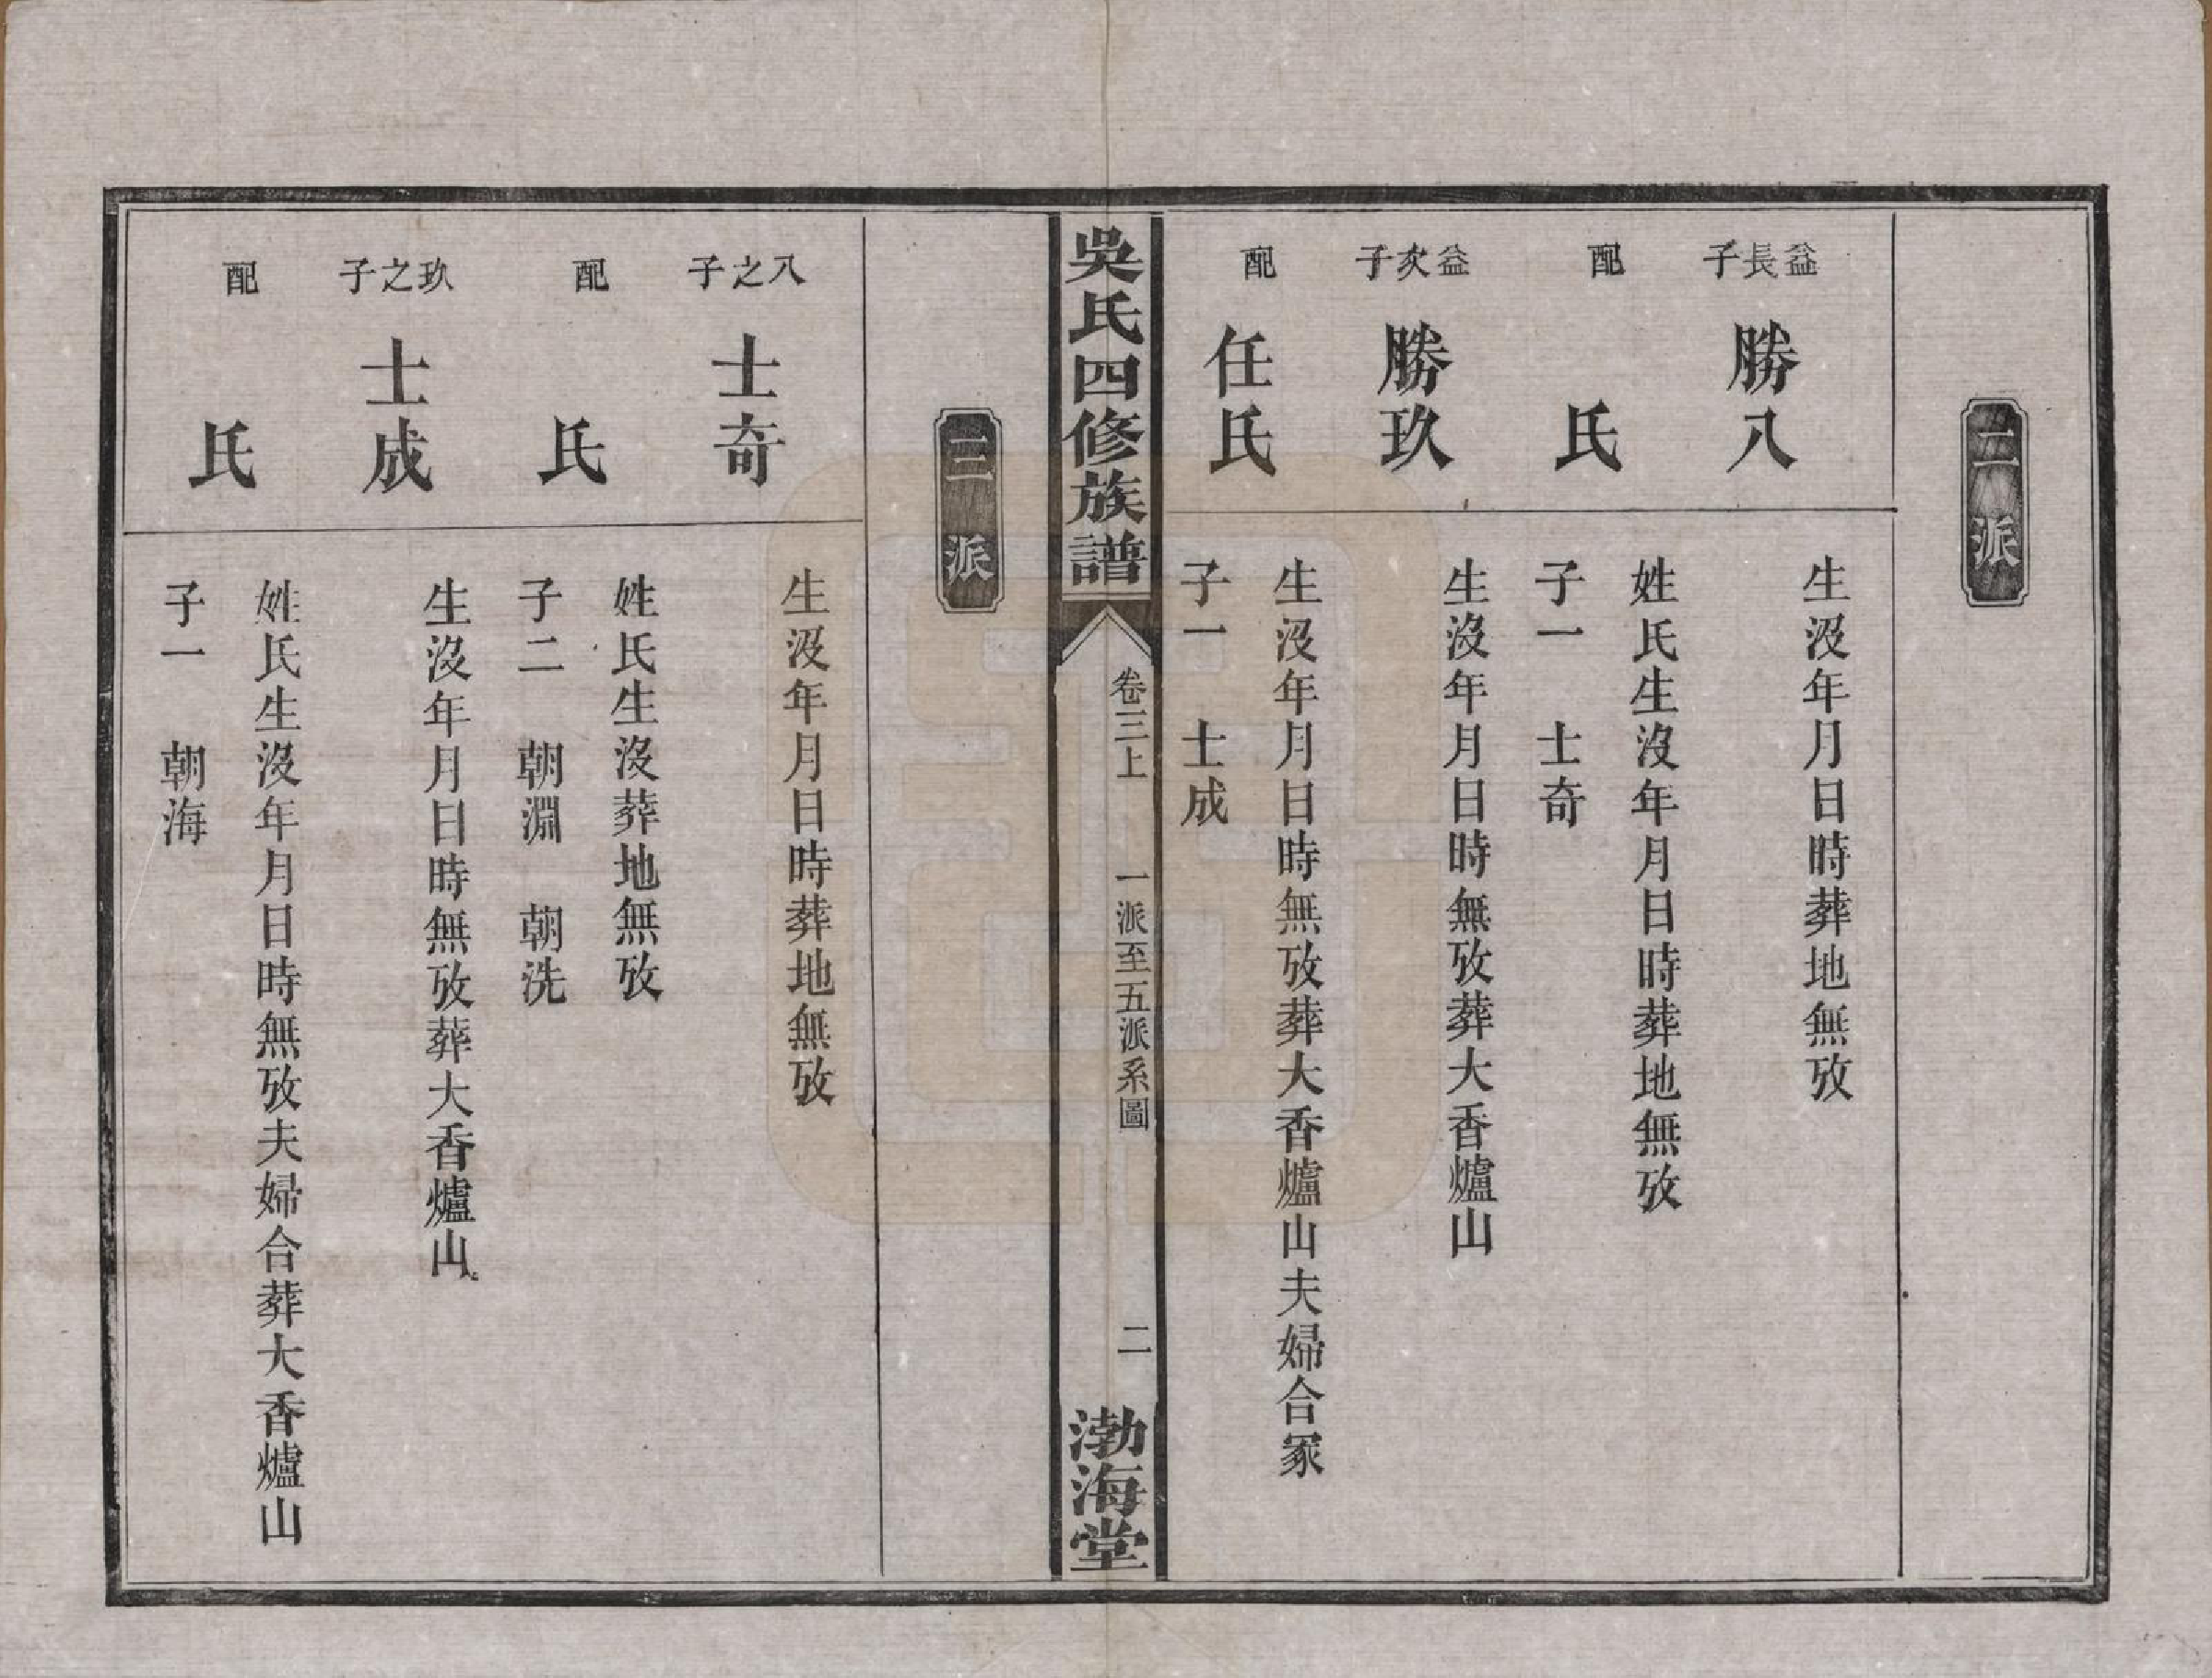 二派
益長子
勝八
生沒年月日時葬地無攷
配
氏
姓氏生沒年月日時葬地無攷
子一　士奇
益次子
勝玖
生沒年月日時無攷葬大香爐山
配
任氏
生沒年月日時無攷葬大香爐山夫婦合冢
子一　士成
吳氏四修族譜
卷三上　一派至五派系圖
二
渤海堂
三派
八之子
士奇
生沒年月日時葬地無攷
配
氏
姓氏生沒葬地無攷
子二　朝淵　朝洗
玖之子
士成
生沒年月日時無攷葬大香爐山
配
氏
姓氏生沒年月日時無攷夫婦合葬大香爐山
子一　朝海